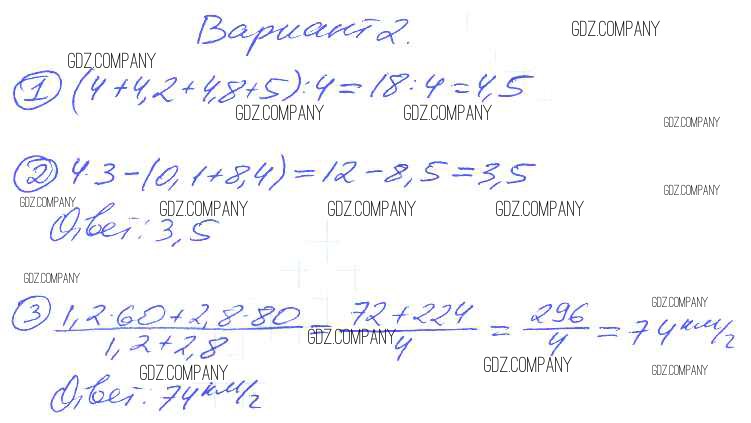 Вариант 2.
GDZ.COMPANY
GDZ.COMPANY
① (4+4,2+4,8+5):4=18:4=4,5
GDZ.COMPANY GDZ.COMPANY
GDZ.COMPANY
② 4·3-(0,1+8,4)=12-8,5=3,5
GDZ.COMPANY
GDZ.COMPANY GDZ.COMPANY GDZ.COMPANY GDZ.COMPANY
Ответ: 3,5
GDZ.COMPANY
③ (1,2·60+2,8·80)/(1,2+2,8) = (72+224)/4 = 296/4 = 74 км/г
GDZ.COMPANY
GDZ.COMPANY
GDZ.COMPANY GDZ.COMPANY GDZ.COMPANY
Ответ: 74 км/г